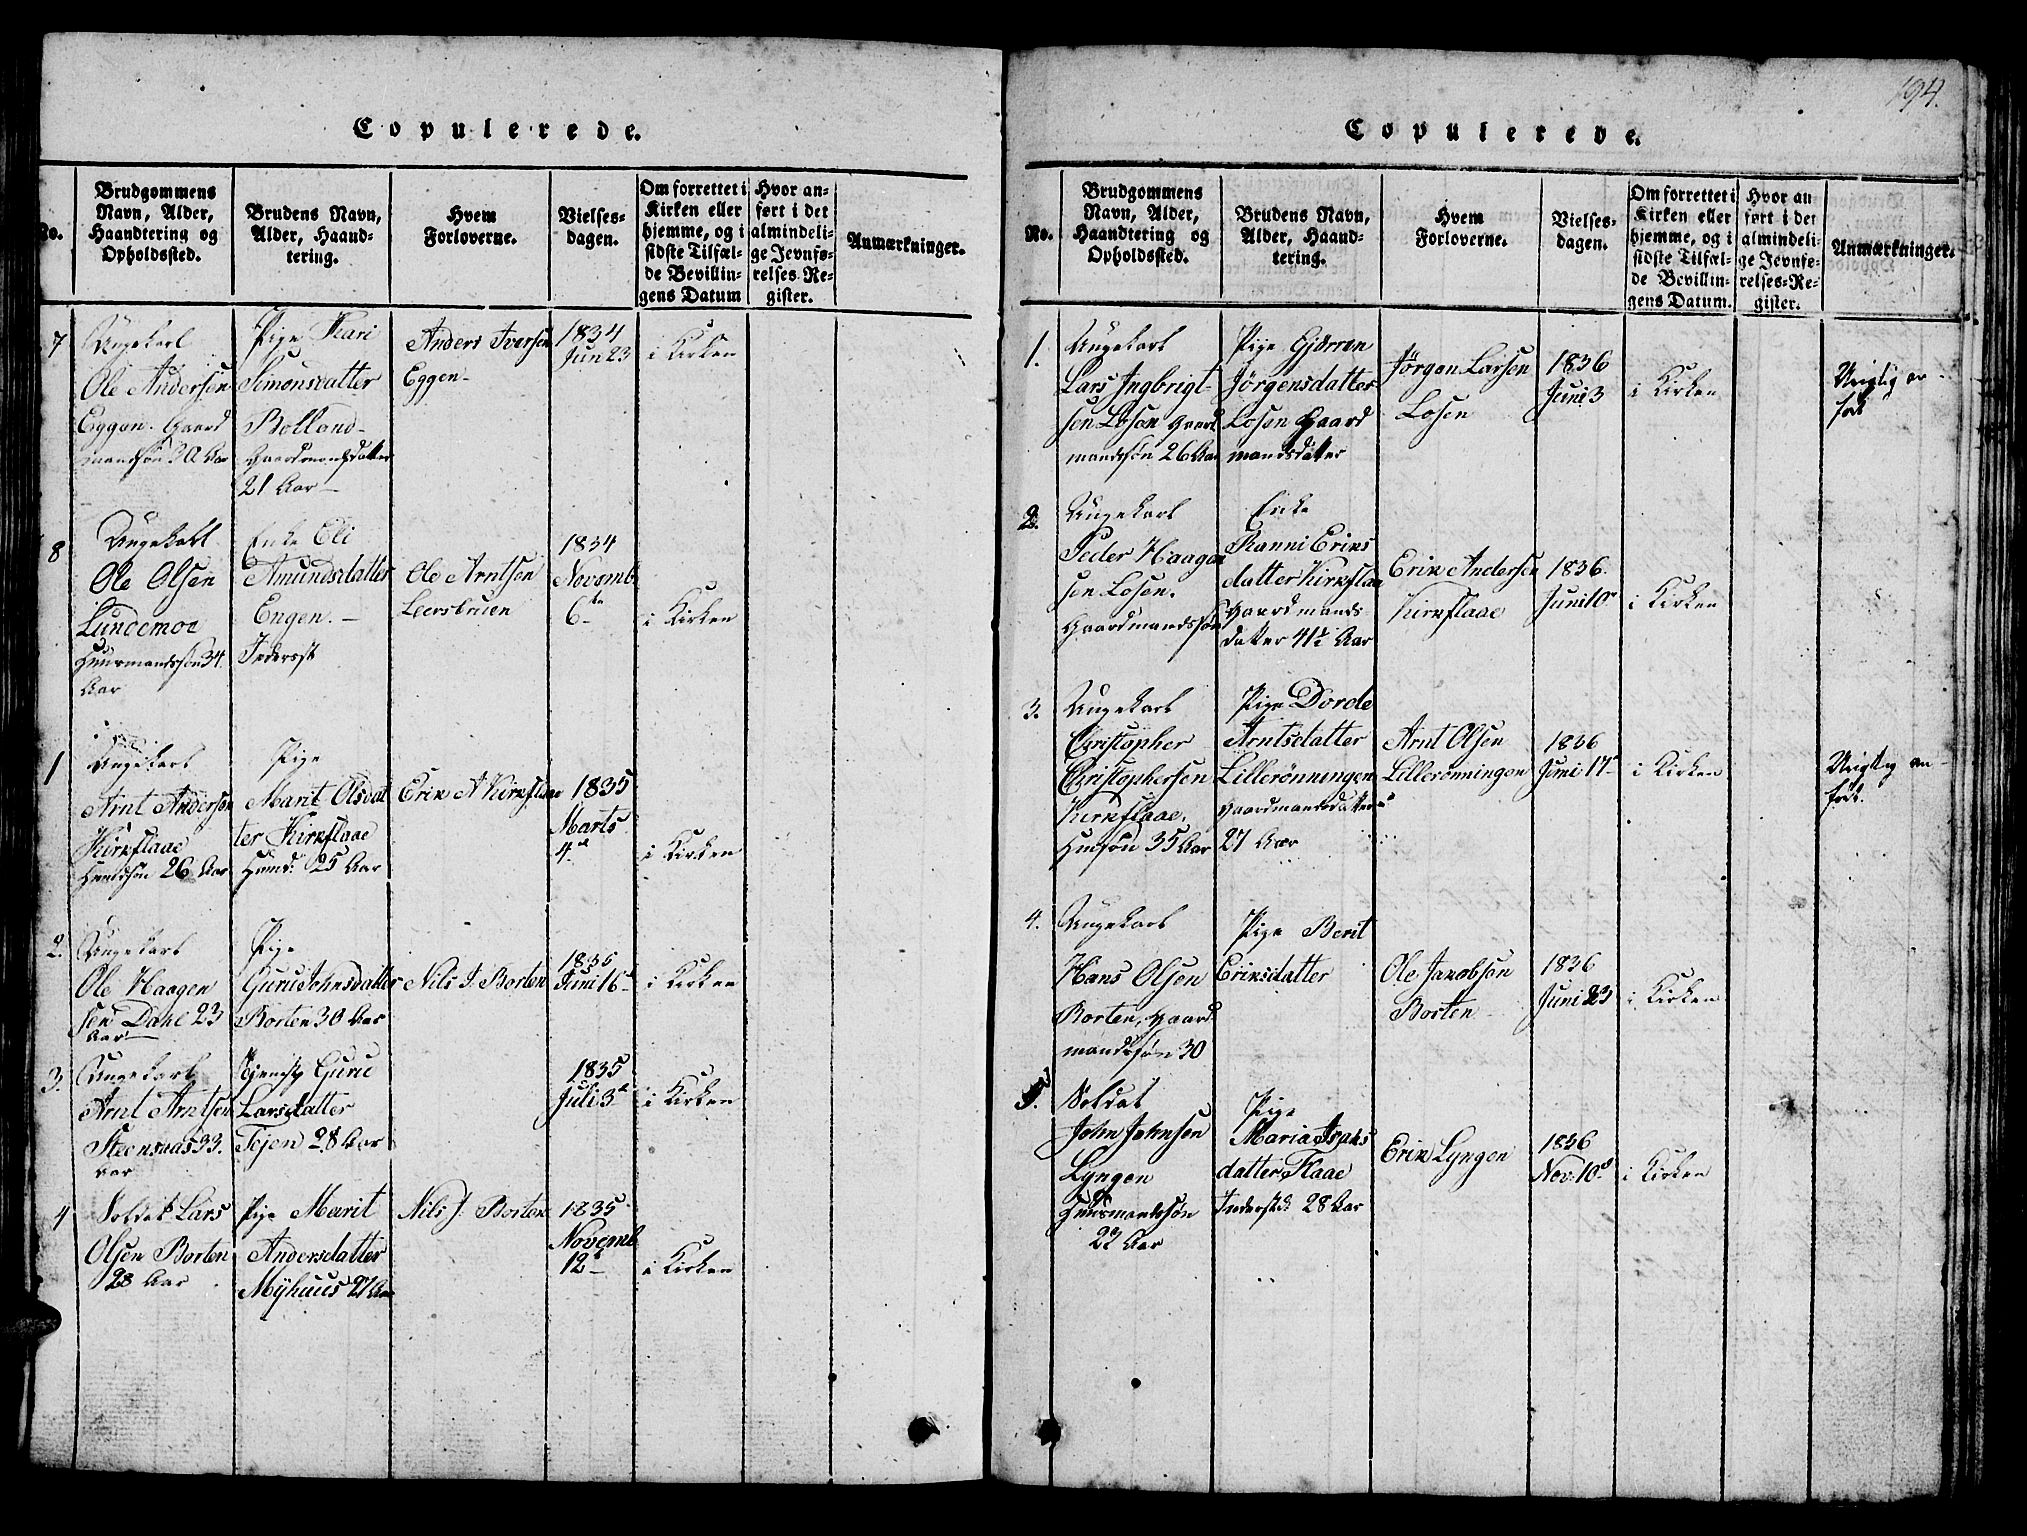 Copulerede.
No.
Brudgommens
Navn, Alder,
Haandtering og
Opholdssted.
Brudens Navn,
Alder, Haand-
tering.
Hvem
Forloverne.
Vielses-
dagen.
Om forrettet i
Kirken eller
hjemme, og i
sidste Tilfæl-
de Bevillin-
gens Datum
Hvor an-
ført i det
almindeli-
ge Jevnfø-
relses-Re-
gister.
Anmærkninger.
7
Ungekarl
Ole Andersen
Eggen. Gaard
mandsøn 30 Aar
Pige Kari
Simonsdatter
Rolland-
Gaardmandsdatter
21 Aar-
Anders Iversen
Eggen-
1834
Jun 23
i Kirken
8
Ungekarl
Ole Olsen
Lundemoe
Huusmandssøn 34.
Aar
Enke Eli
Amundsdatter
Engen.-
Inderst
Ole Arntsen
Leersbruen
1834
Novemb.
6te
i Kirken
1
Ungekarl
Arnt Andersen
Kirkflaae
26 Aar
Pige
Marit Olsdat
ter Kirkflaae
25 Aar
Erik A Kirkflaae
1835
Marts
4d
i Kirken
2.
Ungekarl
Ole Haagen
sen Dahl 23
Aar
Pige
Guru Johnsdatter
Borten 30 Aar
Nils J. Borten
1835
Juni 16d
i Kirken
3.
Ungekarl
Arnt Arntsen
33.
Aar
Guru
Larsdatter
28 Aar
1835
Juli 3d
i Kirken
4
Soldat Lars
Olsen Borten
28 Aar
Pige Marit
Andersdatter
Myhuus 27 Aar
Nils J. Borten
1835
Novemb
12d
i Kirken
194.
Copulerede.
No.
Brudgommens
Navn, Alder,
Haandtering og
Opholdssted.
Brudens Navn,
Alder, Haand-
tering.
Hvem
Forloverne.
Vielses-
dagen.
Om forrettet i
Kirken eller
hjemme, og i
sidste Tilfæl-
de Bevillin-
gens Datum.
Hvor an
ført i det
almindeli-
ge Jevnfø-
relses-Re-
gister.
Anmærkninger.
1.
Ungekarl
Lars Ingbrigt-
sen Losen Gaard
mandssøn 26 Aar
Pige Gjørron
Jørgensdatter
Losen Gaard
mandsdatter
Jørgen Larsen
Losen
1836
Juni 3
i Kirken
Urigtig an-
ført
2.
Ungekarl
Peder Haagen
sen Losen.
Gaardmandssøn
Enke
Ranni Eriks
datter Kirkflaae
Gaardmands
datter 41½ Aar
Erik Andersen
Kirkflaae
1836.
Juni 10d
i Kirken
3.
Ungekarl
Christopher
Christophersen
Kirkflaae.
Huusøn 35 Aar
Pige Dorde
Arntsdatter
Lillerønningen
Gaardmandsdatter
27 Aar
Arnt Olsen
Lillerønningen
1836
Juni 17d
i Kirken
Urigtig an-
ført.
4.
Ungekarl
Hans Olsen
Borten, Gaard
mandssøn 30
Pige Berit
Eriksdatter
Ole Jakobsen
Borten
1836
Juni 23
i Kirken
5.
Soldat
John Johnsen
Lyngen
Huusmandssøn
22 Aar
Pige
Maria Isaks
datter Flaae
Inderstd. 28 Aar
Erik Lyngen
1836
Nov. 10d
i Kirken